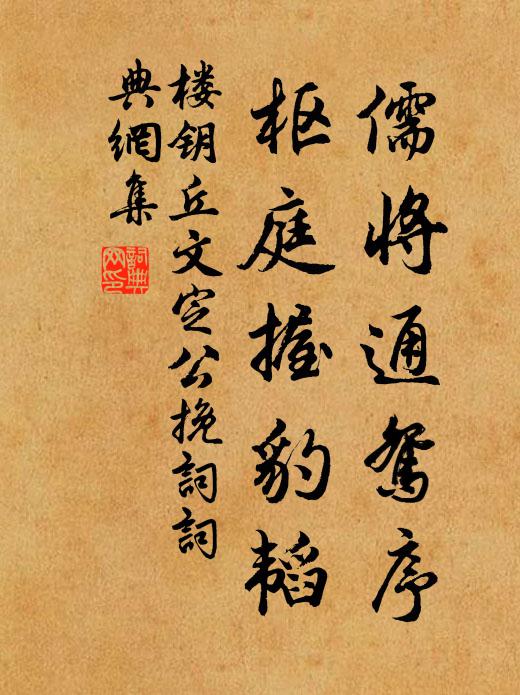 儒将通鸳序
枢庭握豹韬
楼钥丘文定公挽词词
典網集
詞典
网印